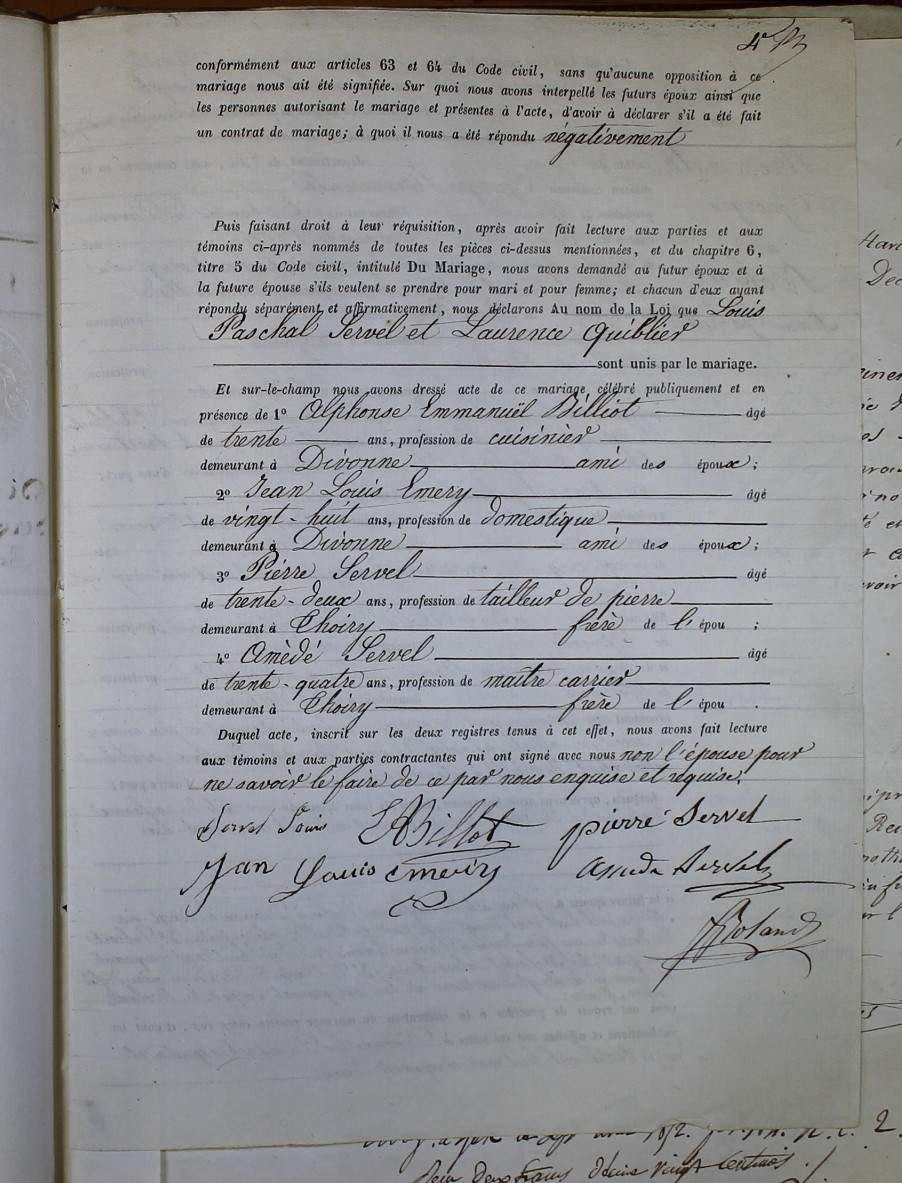 4e
conformément aux articles 63 et 64 du Code civil, sans qu'aucune opposition à ce
mariage nous ait été signifiée. Sur quoi nous avons interpellé les futurs époux ainsi que
les personnes autorisant le mariage et présentes à l'acte, d'avoir à déclarer s'il a été fait
un contrat de mariage; à quoi il nous a été répondu négativement
Puis faisant droit à leur réquisition, après avoir fait lecture aux parties et aux
témoins ci-après nommés de toutes les pièces ci-dessus mentionnées, et du chapitre 6,
titre 5 du Code civil, intitulé Du Mariage, nous avons demandé au futur époux et à
la future épouse s'ils veulent se prendre pour mari et pour femme; et chacun d'eux ayant
répondu séparément et affirmativement, nous déclarons Au nom de la Loi que Louis
Paschal Servel et Laurence Quiblier
sont unis par le mariage.
Et sur-le-champ nous avons dressé acte de ce mariage célébré publiquement et en
présence de 1º Alphonse Emmanuël Billiot âgé
de trente ans, profession de cuisinier
demeurant à Divonne ami des époux;
2º Jean Louis Emery âgé
de vingt-huit ans, profession de domestique
demeurant à Divonne ami des époux;
3º Pierre Servel âgé
de trente-deux ans, profession de tailleur de pierre
demeurant à Thoiry frère de l'épou ;
4º Amèdé Servel âgé
de trente-quatre ans, profession de maître carrier
demeurant à Thoiry frère de l'épou .
Duquel acte, inscrit sur les deux registres tenus à cet effet, nous avons fait lecture
aux témoins et aux parties contractantes qui ont signé avec nous non l'épouse pour
ne savoir le faire de ce par nous enquise et requise.
Servel Louis Billot pierre Servel
Jan Louis emery Servel
Roland